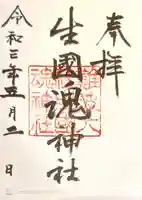 奉拝
生國魂神社
令和三年五月二日